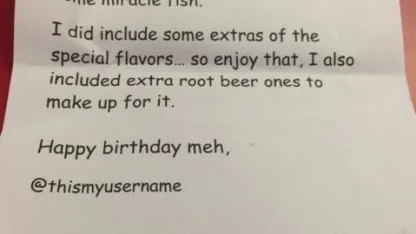 miracle fish.
I did include some extras of the
special flavors... so enjoy that, I also
included extra root beer ones to
make up for it.
Happy birthday meh,
@thismyusername